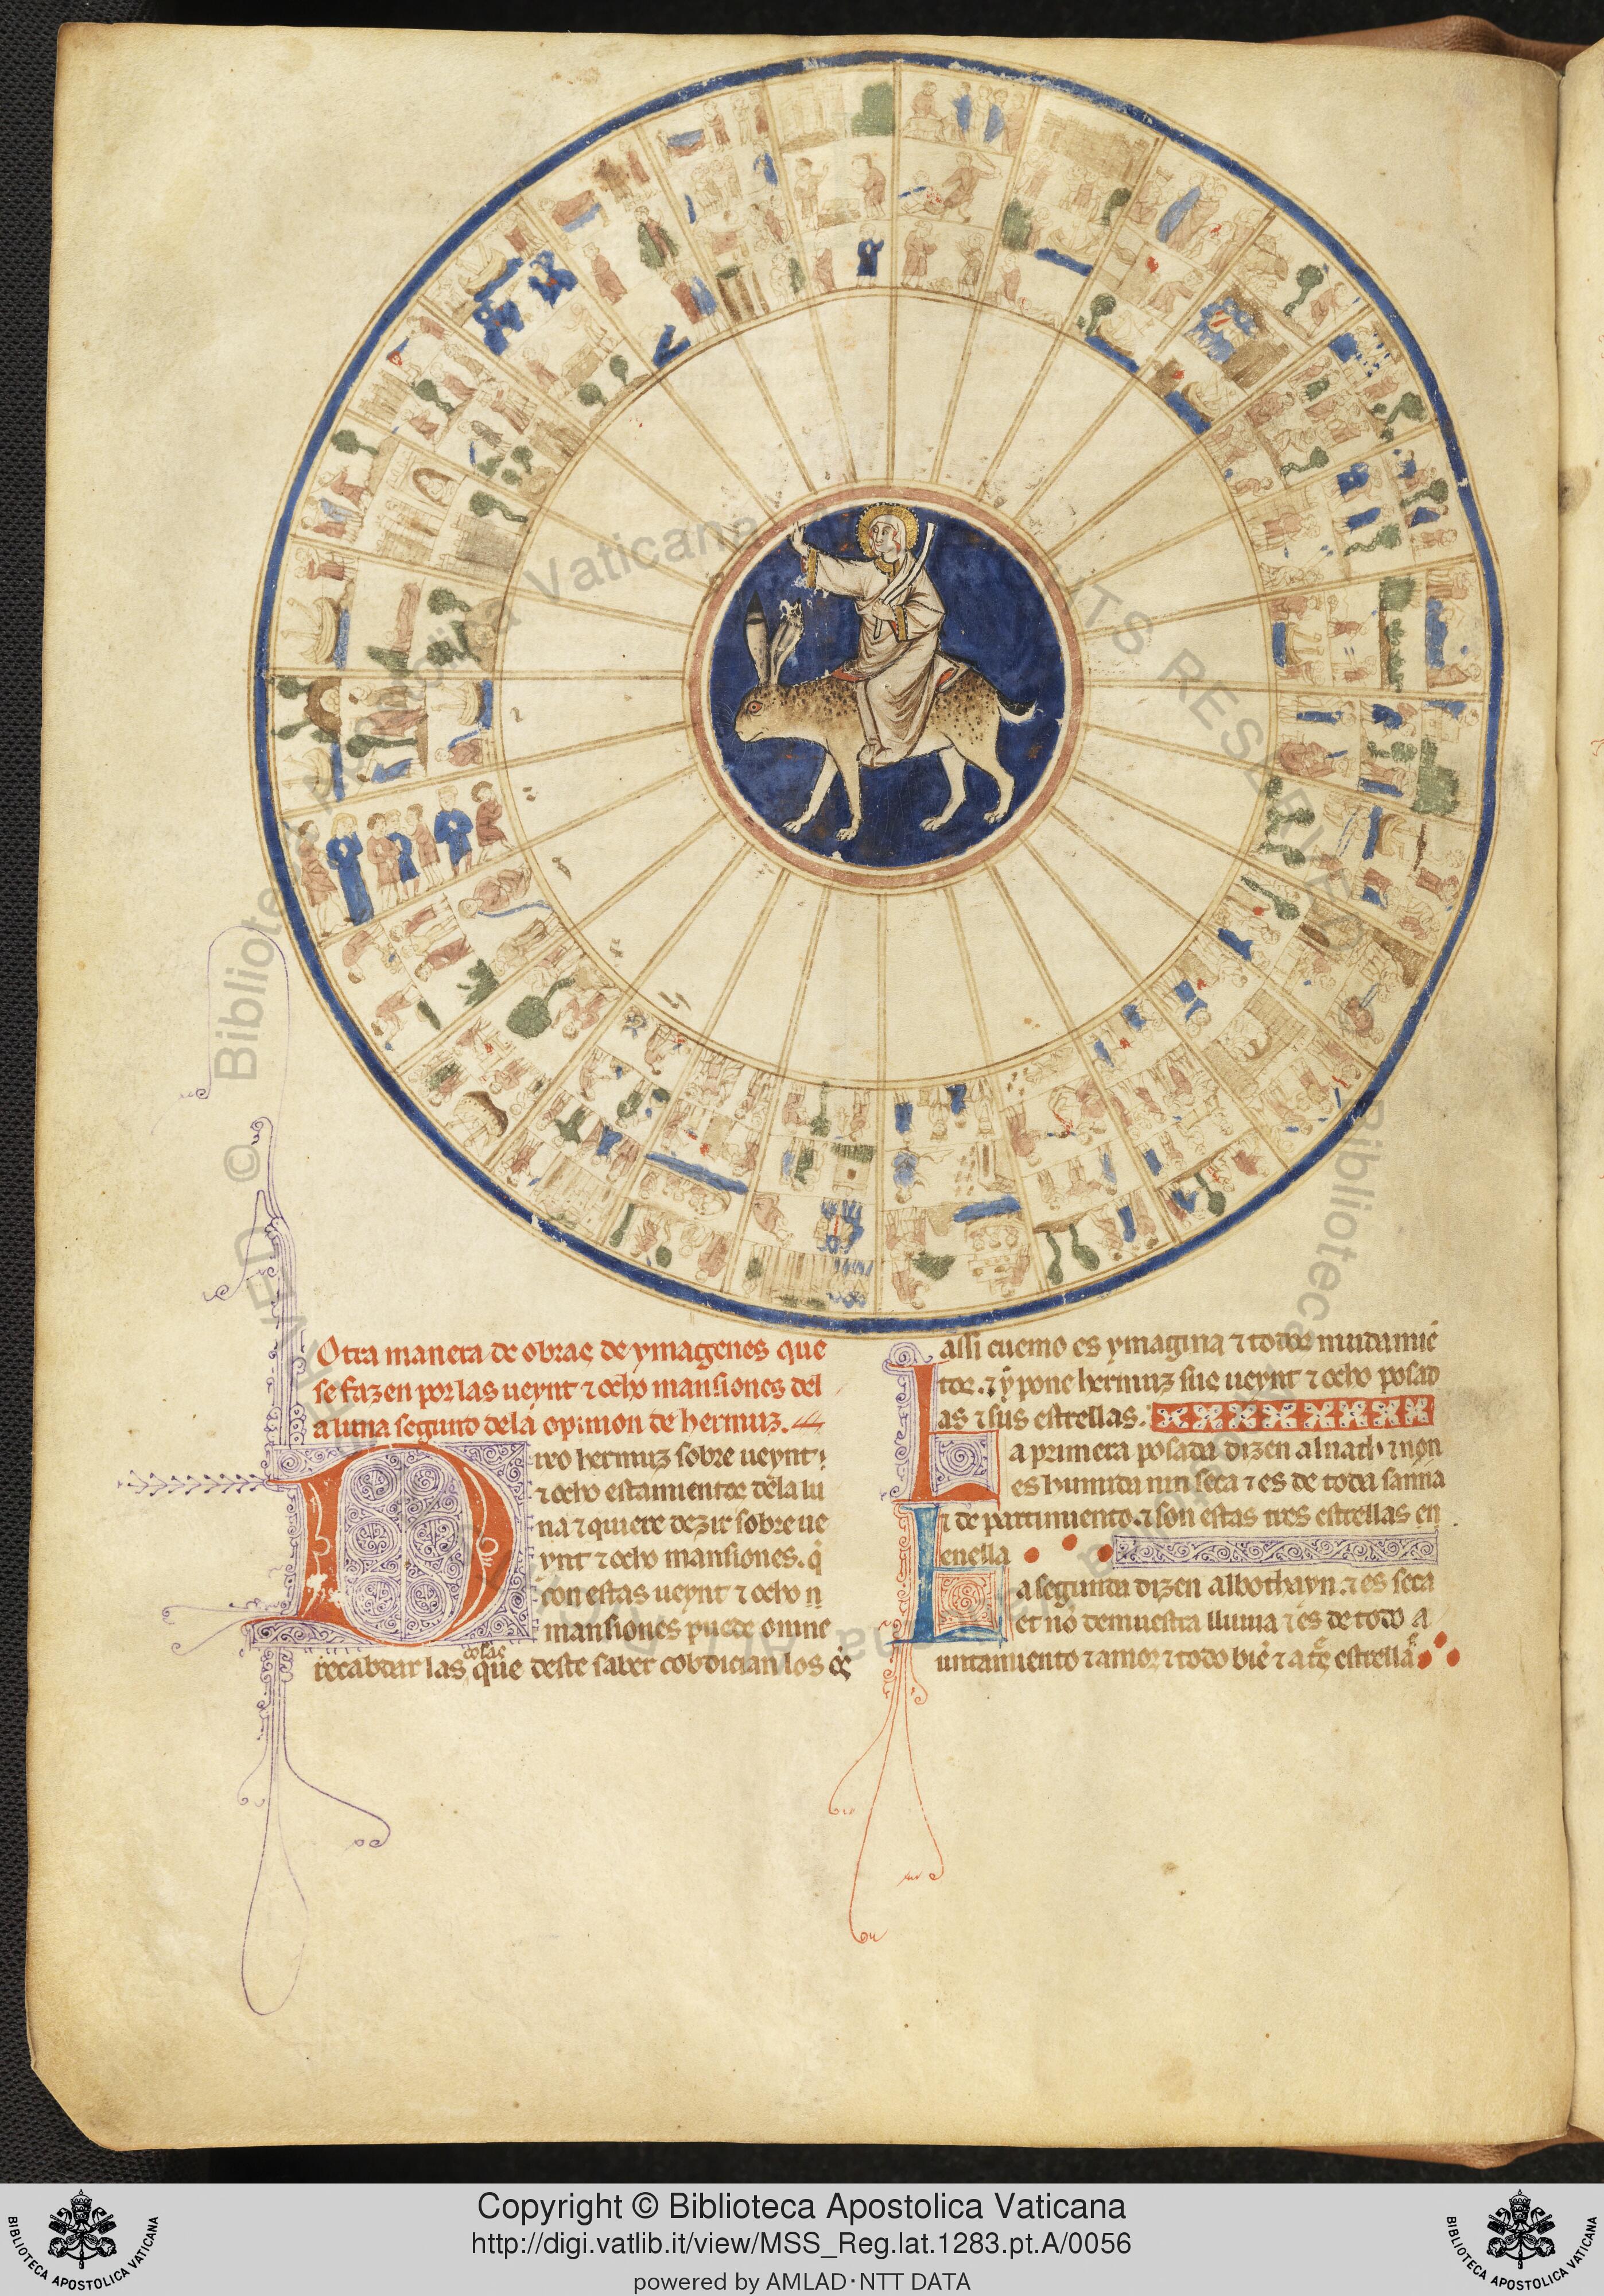 Otra manera de obras de ymagenes que
se fazen por las ueynt ⁊ ocho mansiones del
a luna segund dela opinion de hermuz.
Dixo hermuz sobre ueynt
⁊ ocho estamientos dela lu
na ⁊ quiere dezir sobre ue
ynt ⁊ ocho mansiones. q̇
con estas ueynt ⁊ ocho
mansiones puede omne
recabdar las cosas que deste saber cobdician los
assi cuemo es ymagina ⁊ todos mudamiē
tos. ⁊ y pone hermuz sus ueynt ⁊ ocho posad
as ⁊ sus estrellas.
La primera posada dizen alnath ⁊ non
es humida nin seca ⁊ es de toda sanna
⁊ de partimiento. ⁊ son estas tres estrellas en
enella
La segunda dizen albothayn. ⁊ es seca
et nō demuestra lluuia ⁊ es de todo a
untamiento ⁊ amor ⁊ todo biē ⁊ a estrellas
© Biblioteca Apostolica Vaticana
RIGHTS RESERVED © Biblioteca Apostolica Vaticana
Copyright © Biblioteca Apostolica Vaticana
http://digi.vatlib.it/view/MSS_Reg.lat.1283.pt.A/0056
powered by AMLAD·NTT DATA
BIBLIOTECA APOSTOLICA VATICANA
BIBLIOTECA APOSTOLICA VATICANA